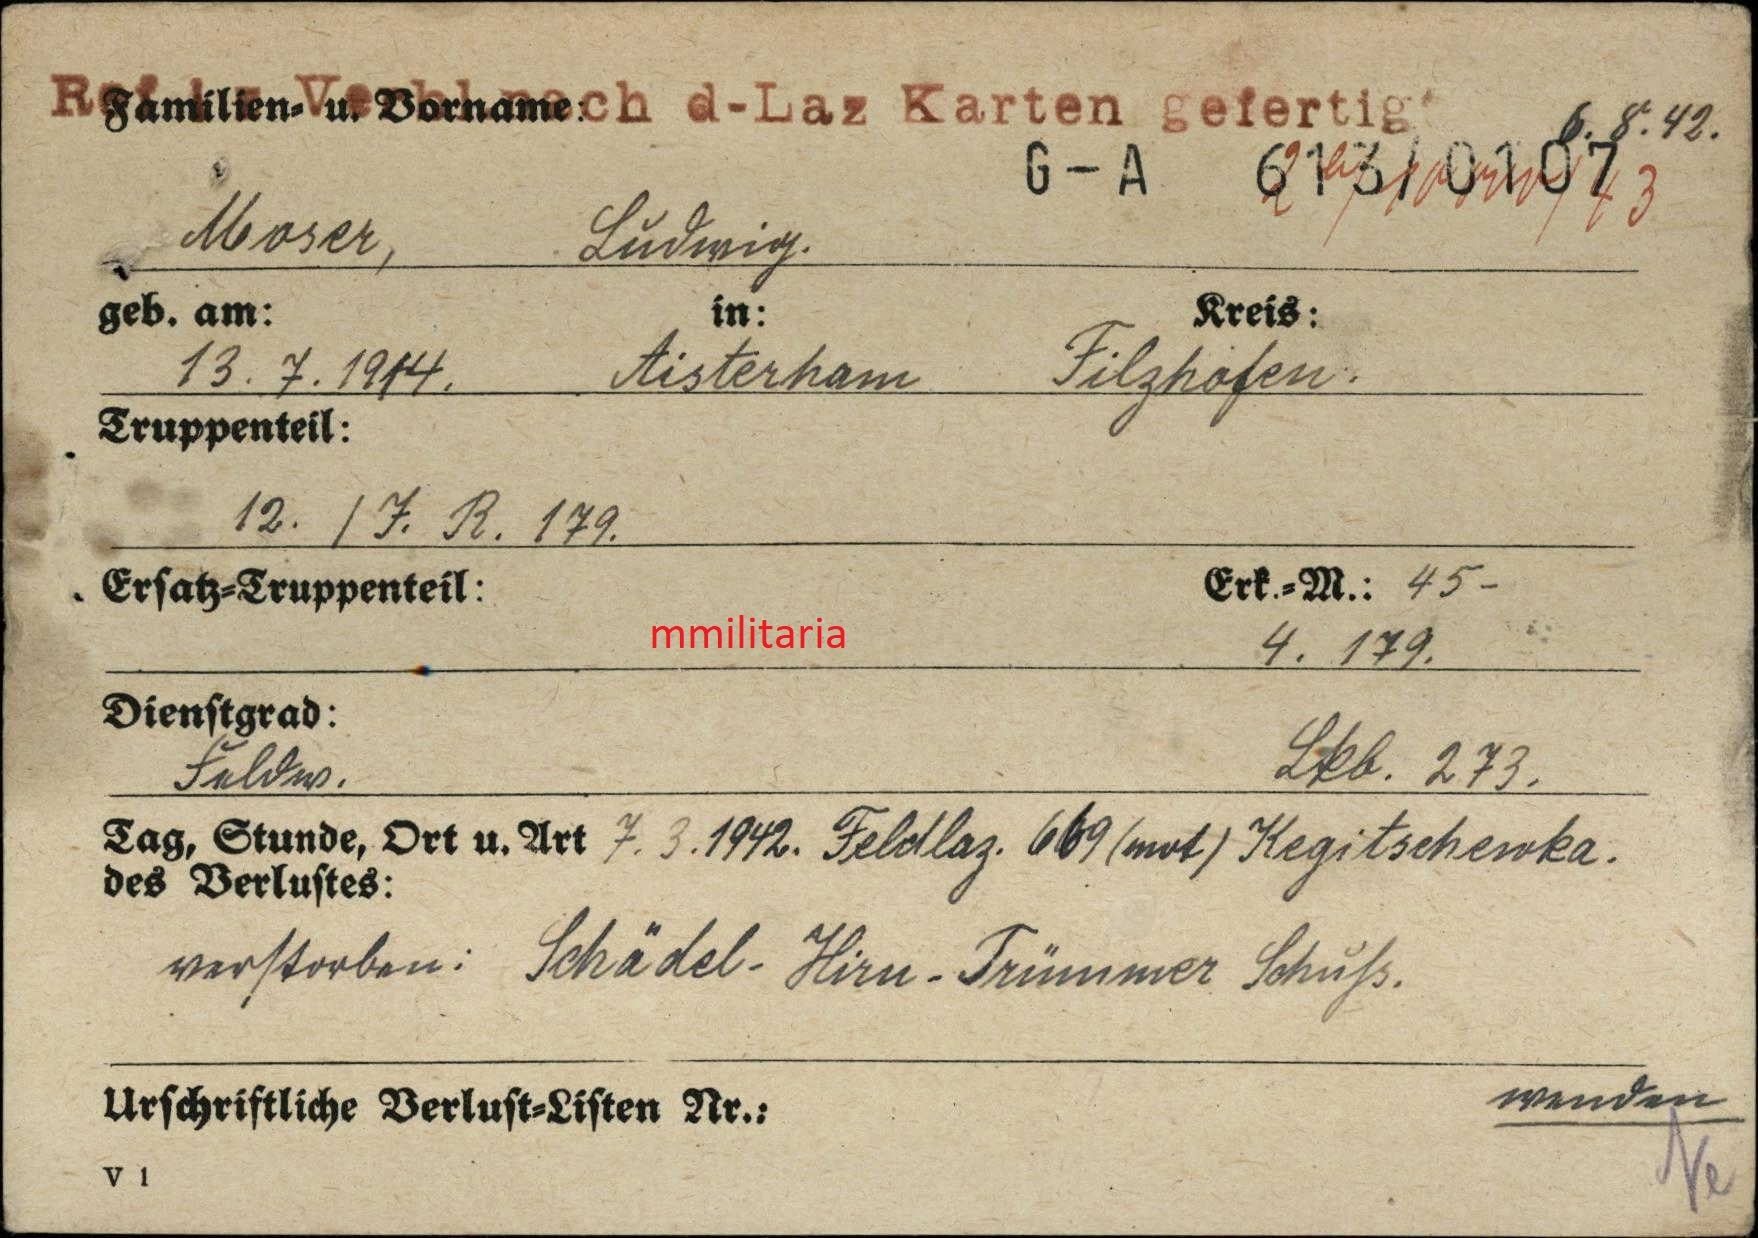 nach d-Laz Karten gefertigt
Familien- u. Vorname:
6. 8. 42.
G-A 613/0107
Moser, Ludwig.
geb. am: in: Kreis:
13. 7. 1914. Aisterham Filzhofen.
Truppenteil:
12. / J. R. 179.
Ersatz-Truppenteil: Erk.-M.: 45-
mmilitaria
4. 179.
Dienstgrad:
Feldw. Lkb. 273.
Tag, Stunde, Ort u. Art 7. 3. 1942. Feldlaz. 669 (mot) Kegitschewka.
des Verlustes:
verstorben: Schädel- Hirn- Trümmer Schuss.
Urschriftliche Verlust-Listen Nr.:
wenden
Ne
V 1